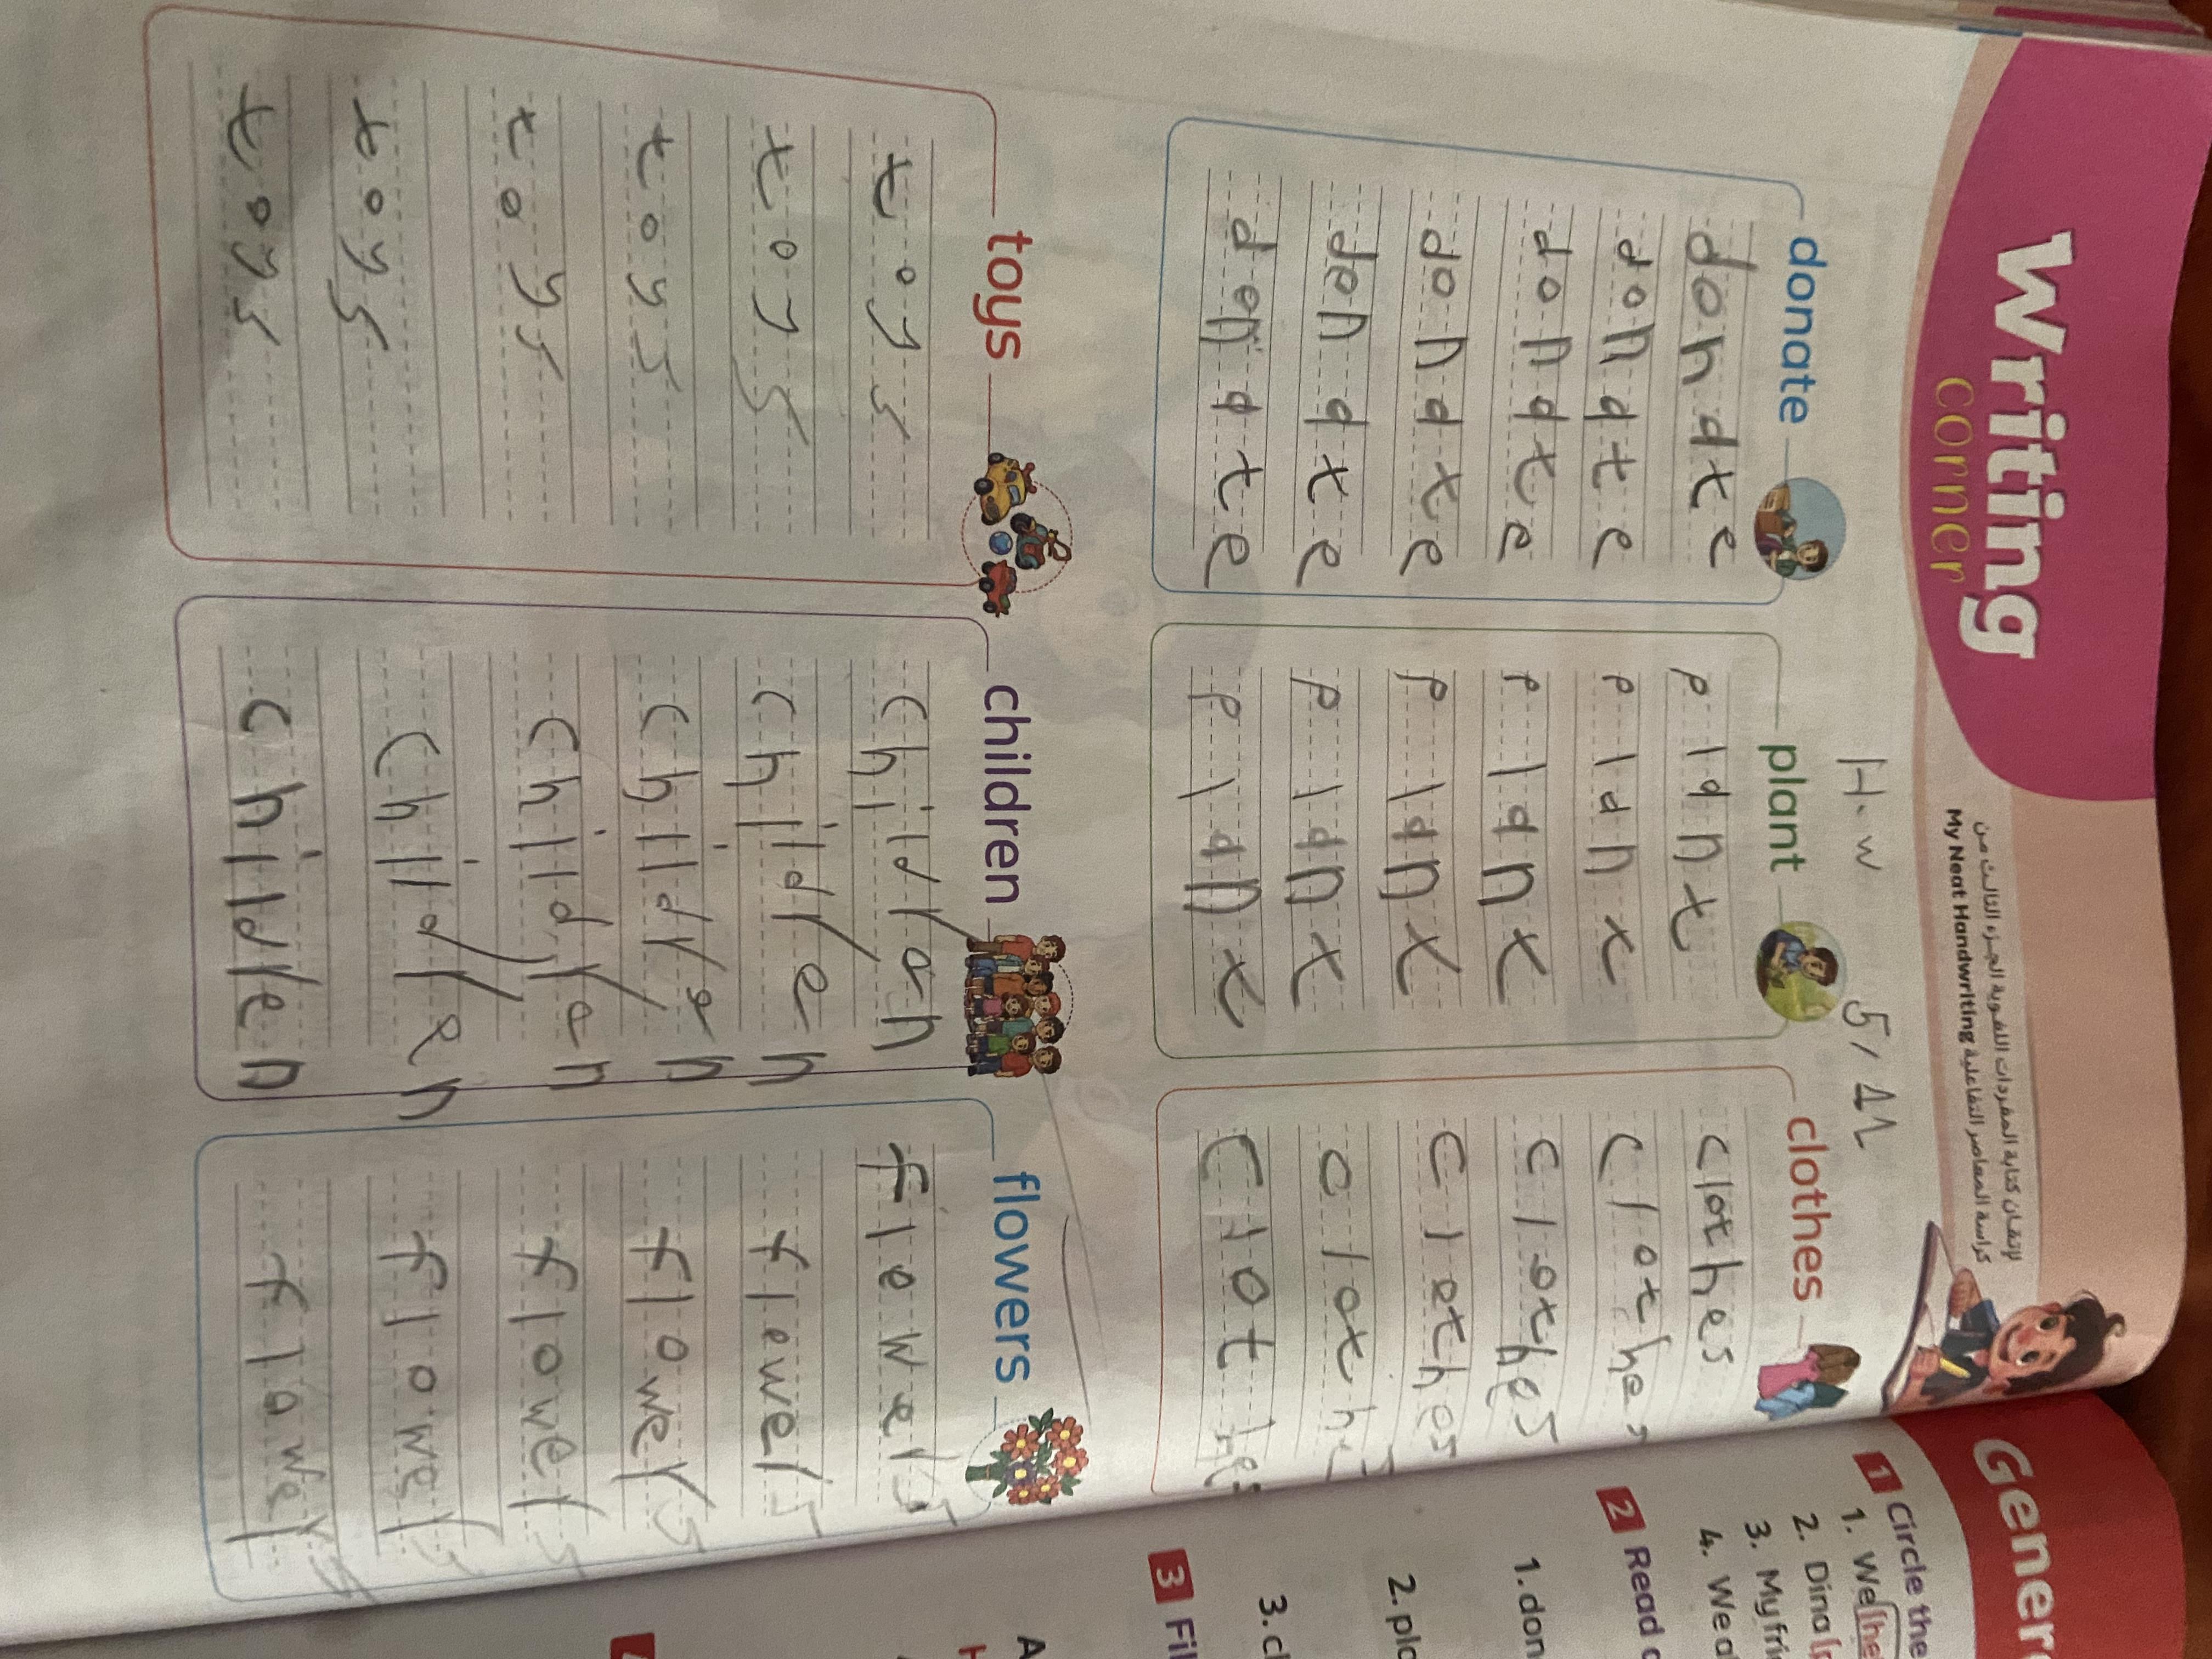 Writing
corner
لإتقان كتابة المفردات اللغوية الجزء الثالث من
كراسة المعاصر التفاعلية My Neat Handwriting
H.w 5/11
donate
donate
donate
donate
donate
donate
donate
plant
plant
plant
plant
plant
plant
plant
clothes
clothes
clothes
clothes
clothes
clothes
clothes
toys
toys
toys
toys
toys
toys
toys
children
children
children
children
children
children
children
flowers
flowers
flowers
flowers
flowers
flowers
flowers
Gener
1 Circle the
1. We [he
2. Dina
3. My fri
4. We a
2 Read
1. don
2. pla
3. cl
3 Fil
A